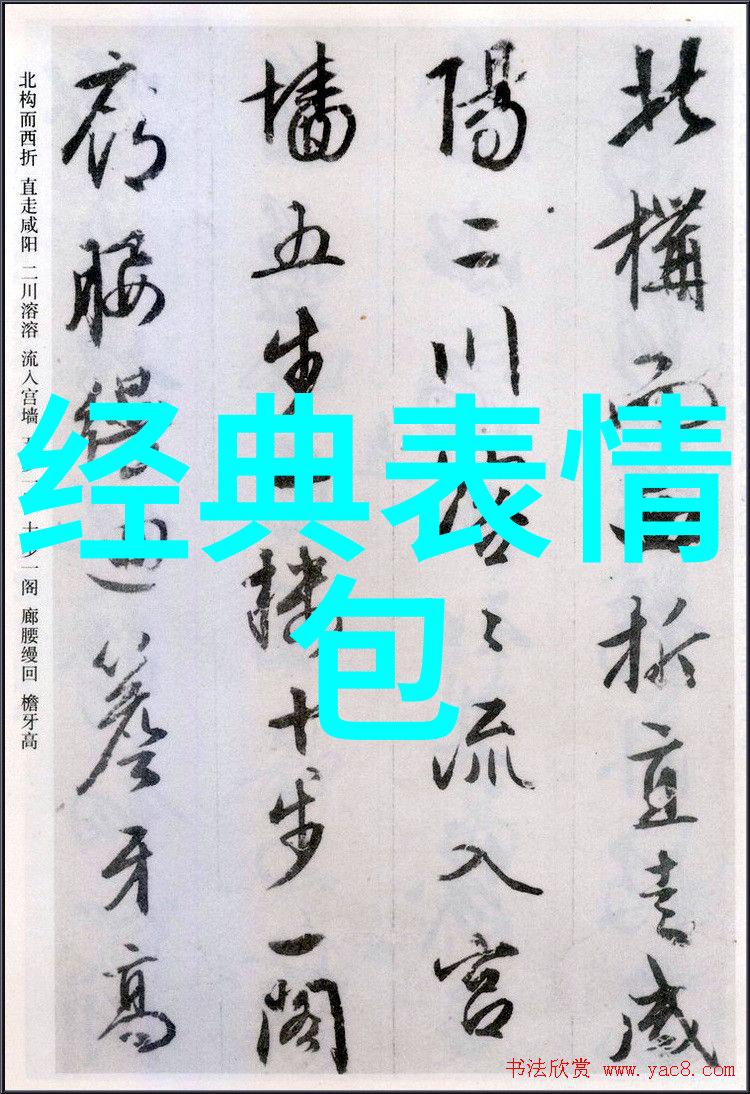 北構而西折直走咸
陽二川溶〻流入宮
墙五步一楼十步一閣
廊腰縵迴簷牙高
北构而西折 直走咸阳 二川溶溶 流入宫墙 五 一 十步一阁 廊腰缦回 檐牙高
经典表情
包
书法欣赏 www.yac8.com